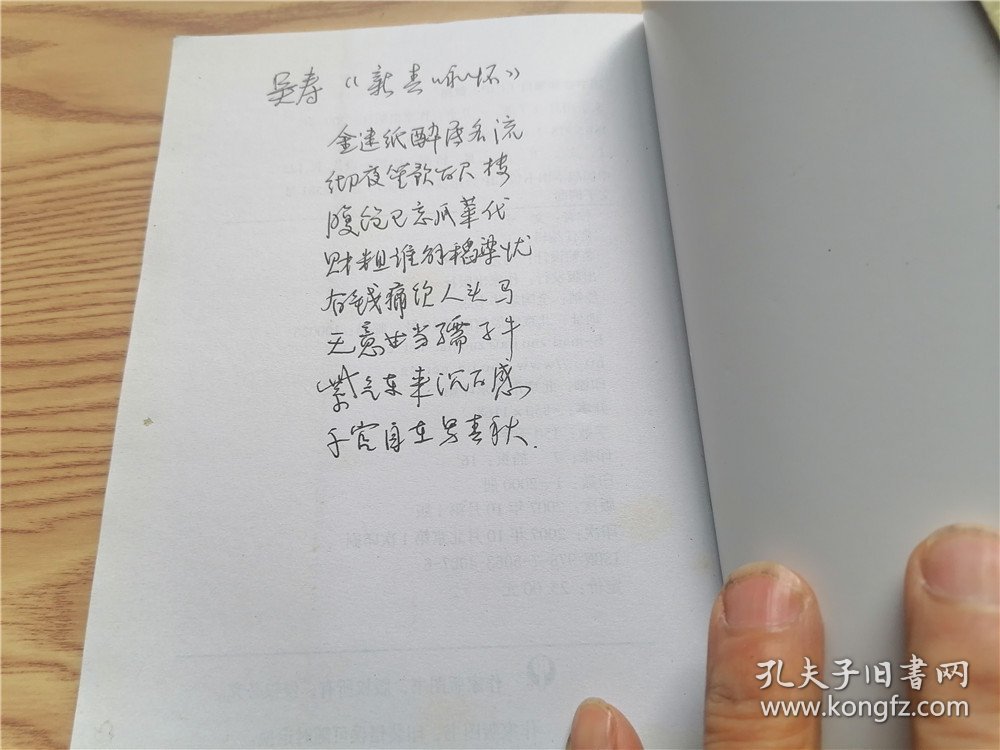 吴寿《新春咏怀》
金迷纸醉属名流
彻夜笙歌百尺楼
腹饱已忘瓜菜代
财粗谁解稻粱忧
有钱痛饮人头马
无意甘当孺子牛
紫气东来沉百感
官自在写春秋.
孔夫子旧书网
www.kongfz.com